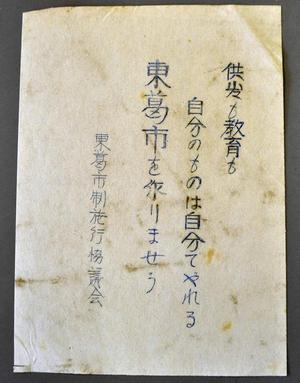 供発も教育も
自分のものは自分でやれる
東葛市を作りませう
東葛市制施行協議会